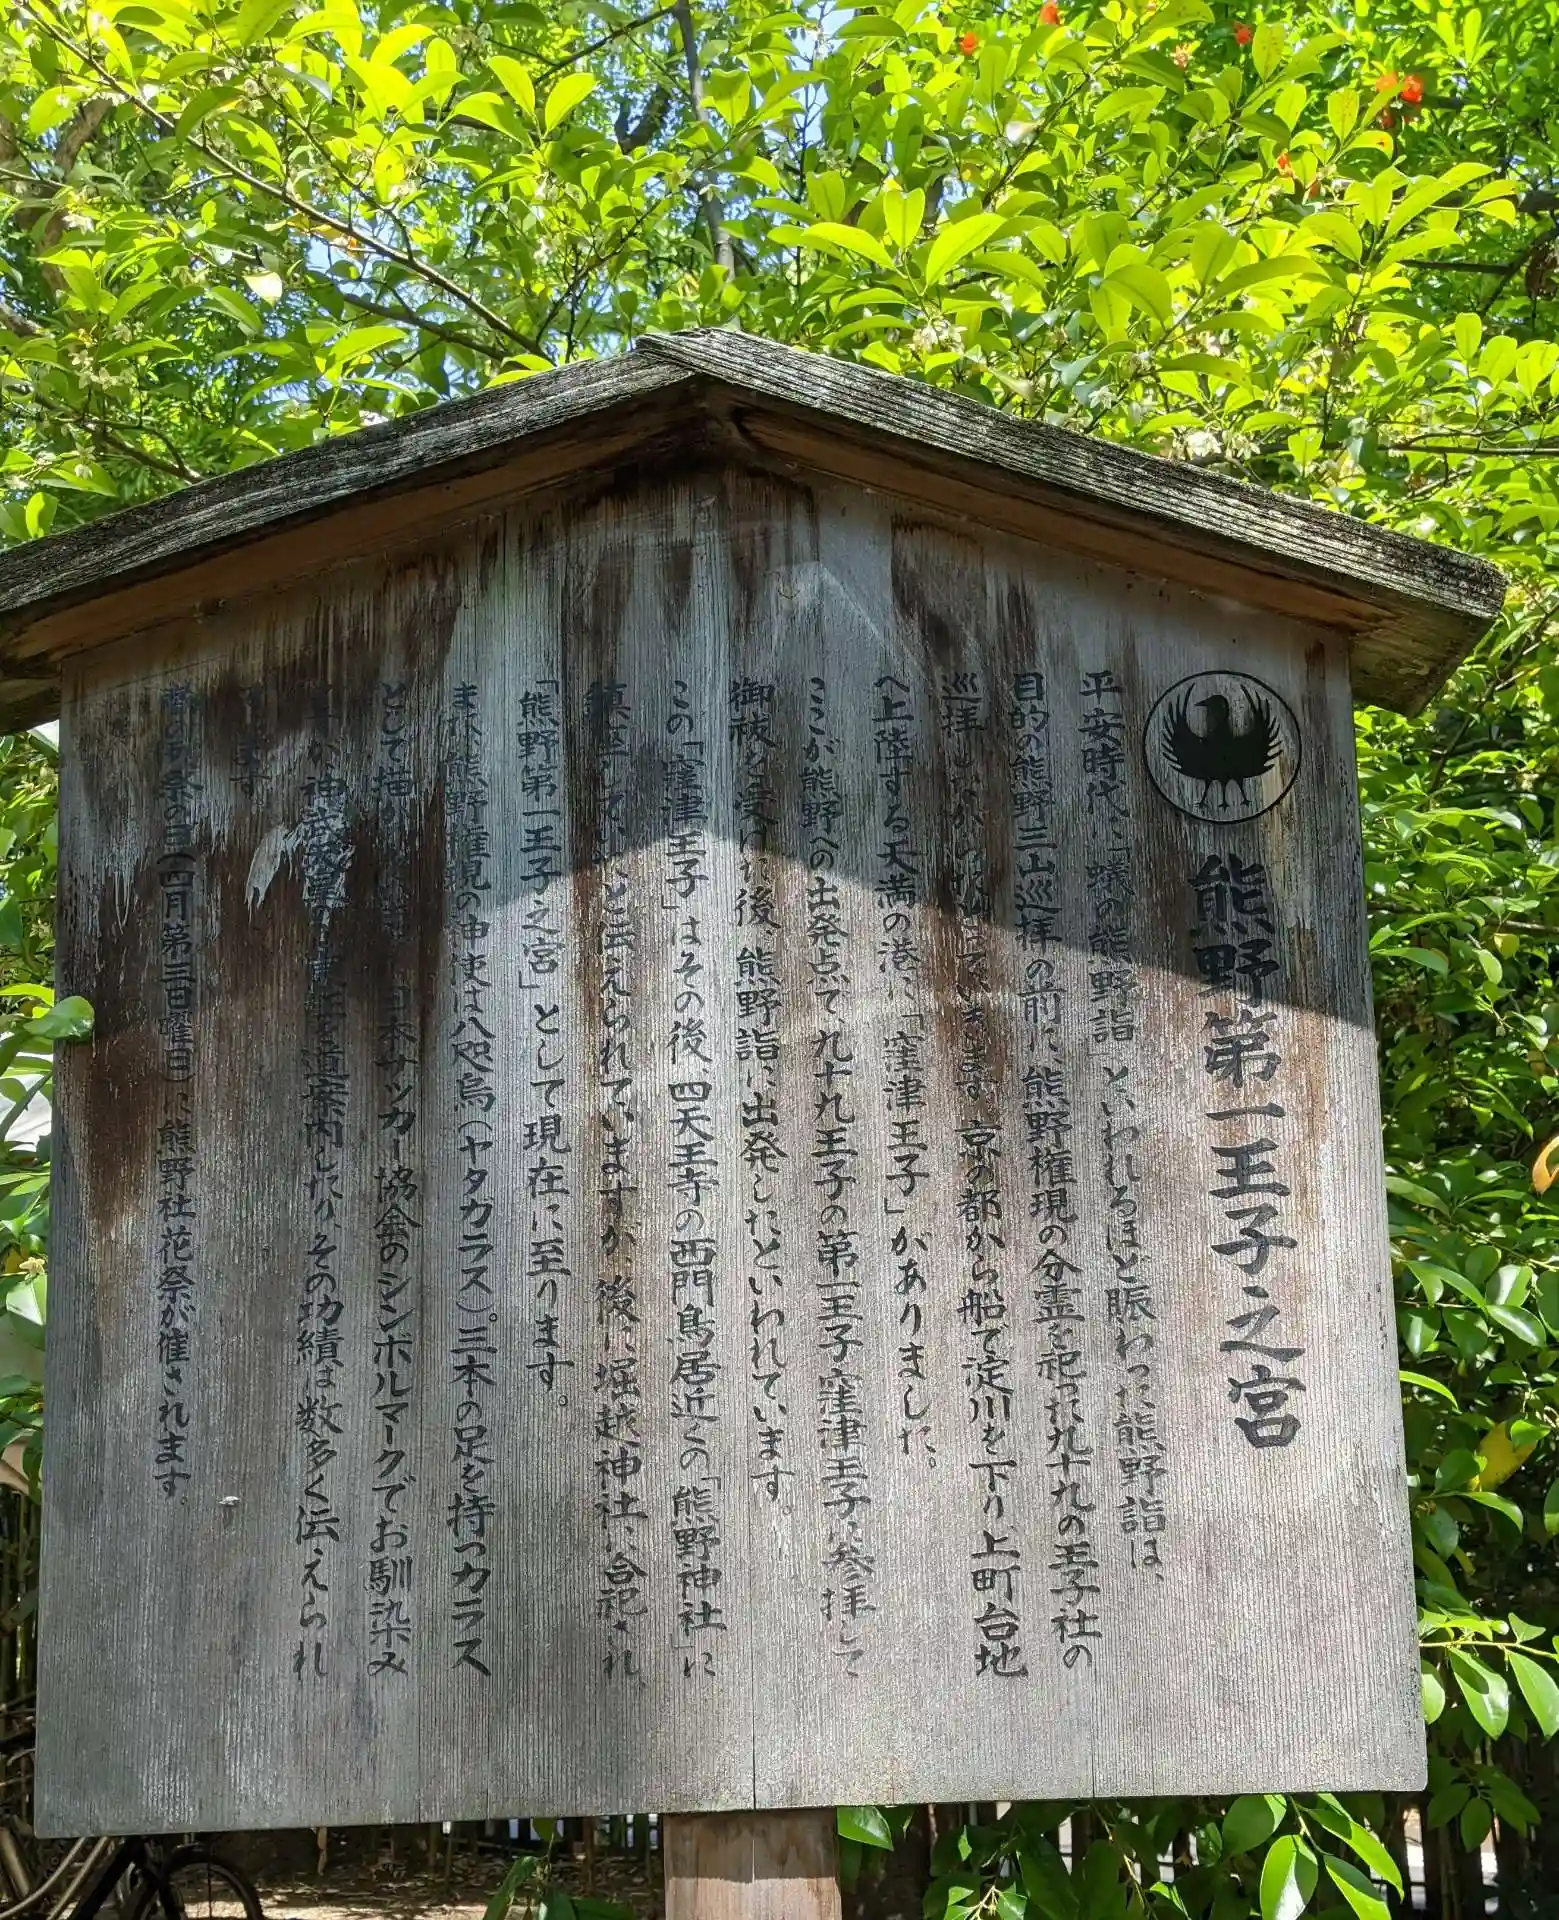 熊野第一王子之宮
平安時代に「蟻の熊野詣」といわれるほど賑わった熊野詣は、
目的の熊野三山巡拝の前に、熊野権現の分霊を祀った九十九の王子社の
巡拝しながら 京の都から船で淀川を下り、上町台地
へ上陸する天満の港に「窪津王子」がありました。
ここが熊野への出発点で、九十九王子の第一王子窪津王子に参拝して
御祓を受けた後、熊野詣に出発したといわれています。
この「窪津王子」はその後、四天王寺の西門鳥居近くの「熊野神社」に
と伝えられていますが、後に堀越神社に合祀され
「熊野第一王子之宮」として現在に至ります。
また、熊野権現の神使は八咫烏(ヤタガラス)。三本の足を持つカラス
として描か 日本サッカー協会のシンボルマークでお馴染み
神武天皇の 道案内したり、その功績は数多く伝えられ
ています
春の例祭の日(四月第三日曜日)に熊野社花祭が催されます。